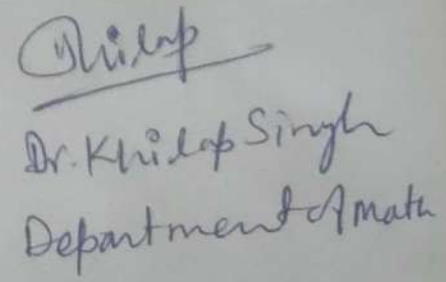 Khilap
Dr. Khilap Singh
Department of Math